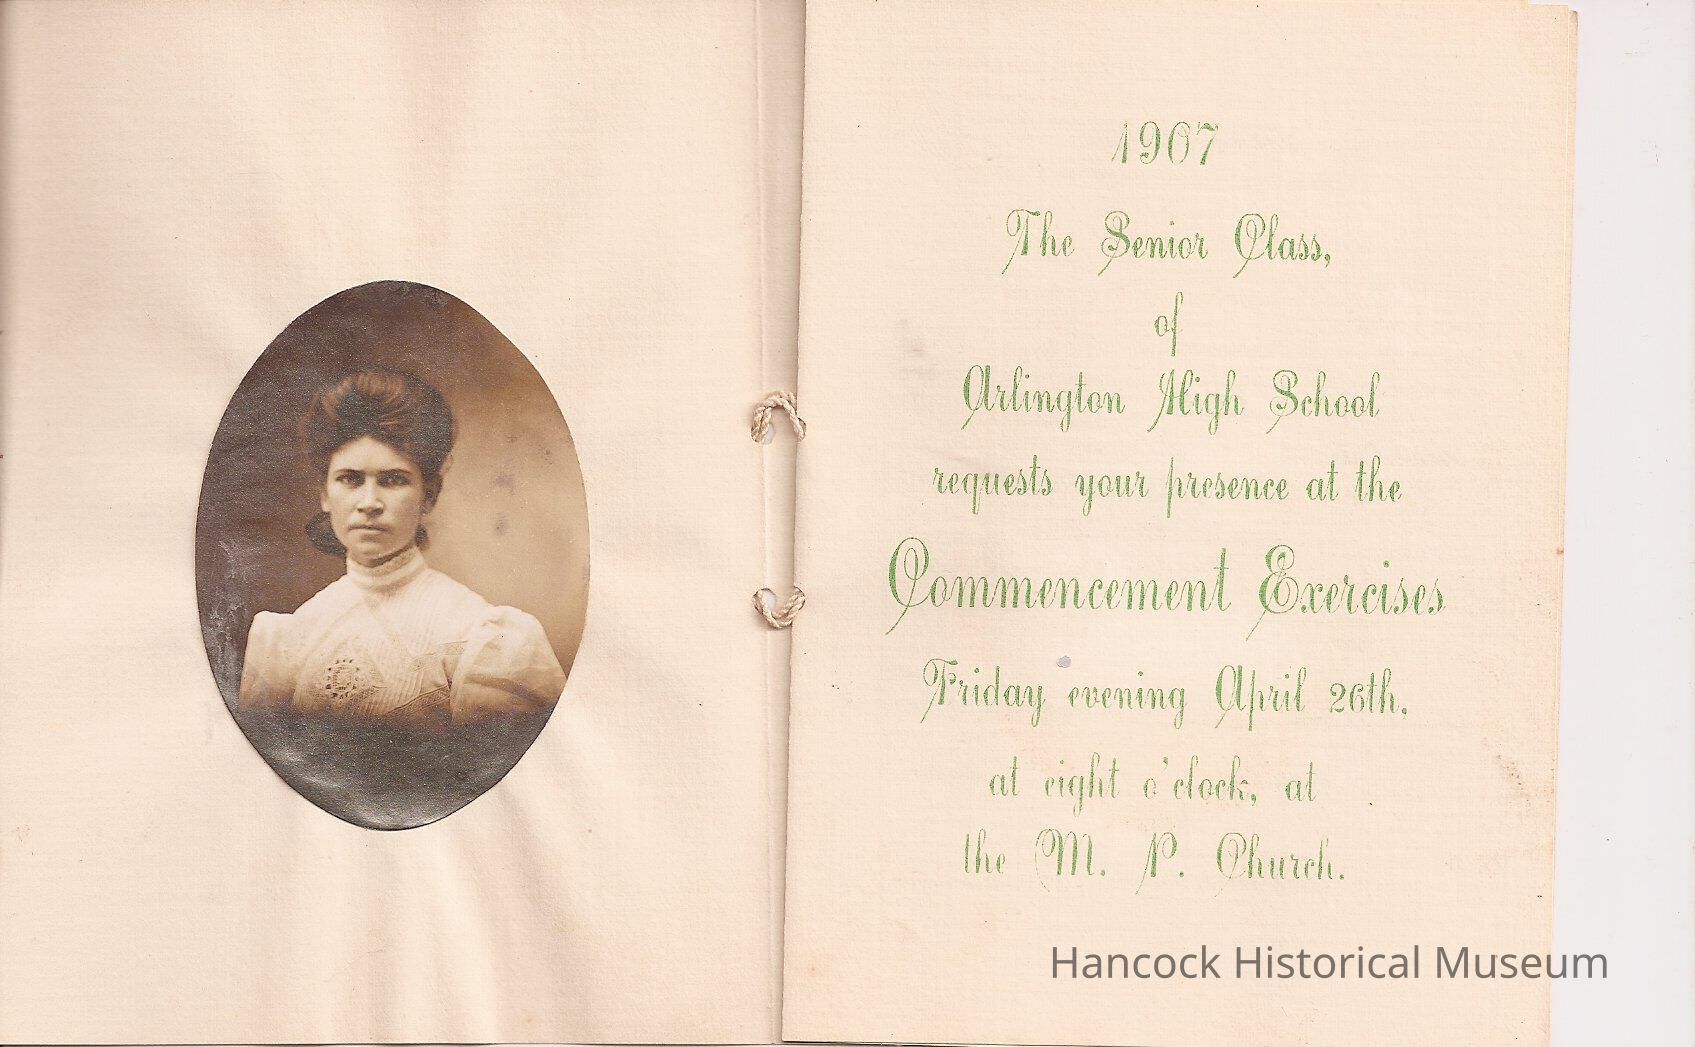 1907
The Senior Class,
of
Arlington High School
requests your presence at the
Commencement Exercises
Friday evening April 26th,
at eight o'clock, at
the M. P. Church.
Hancock Historical Museum